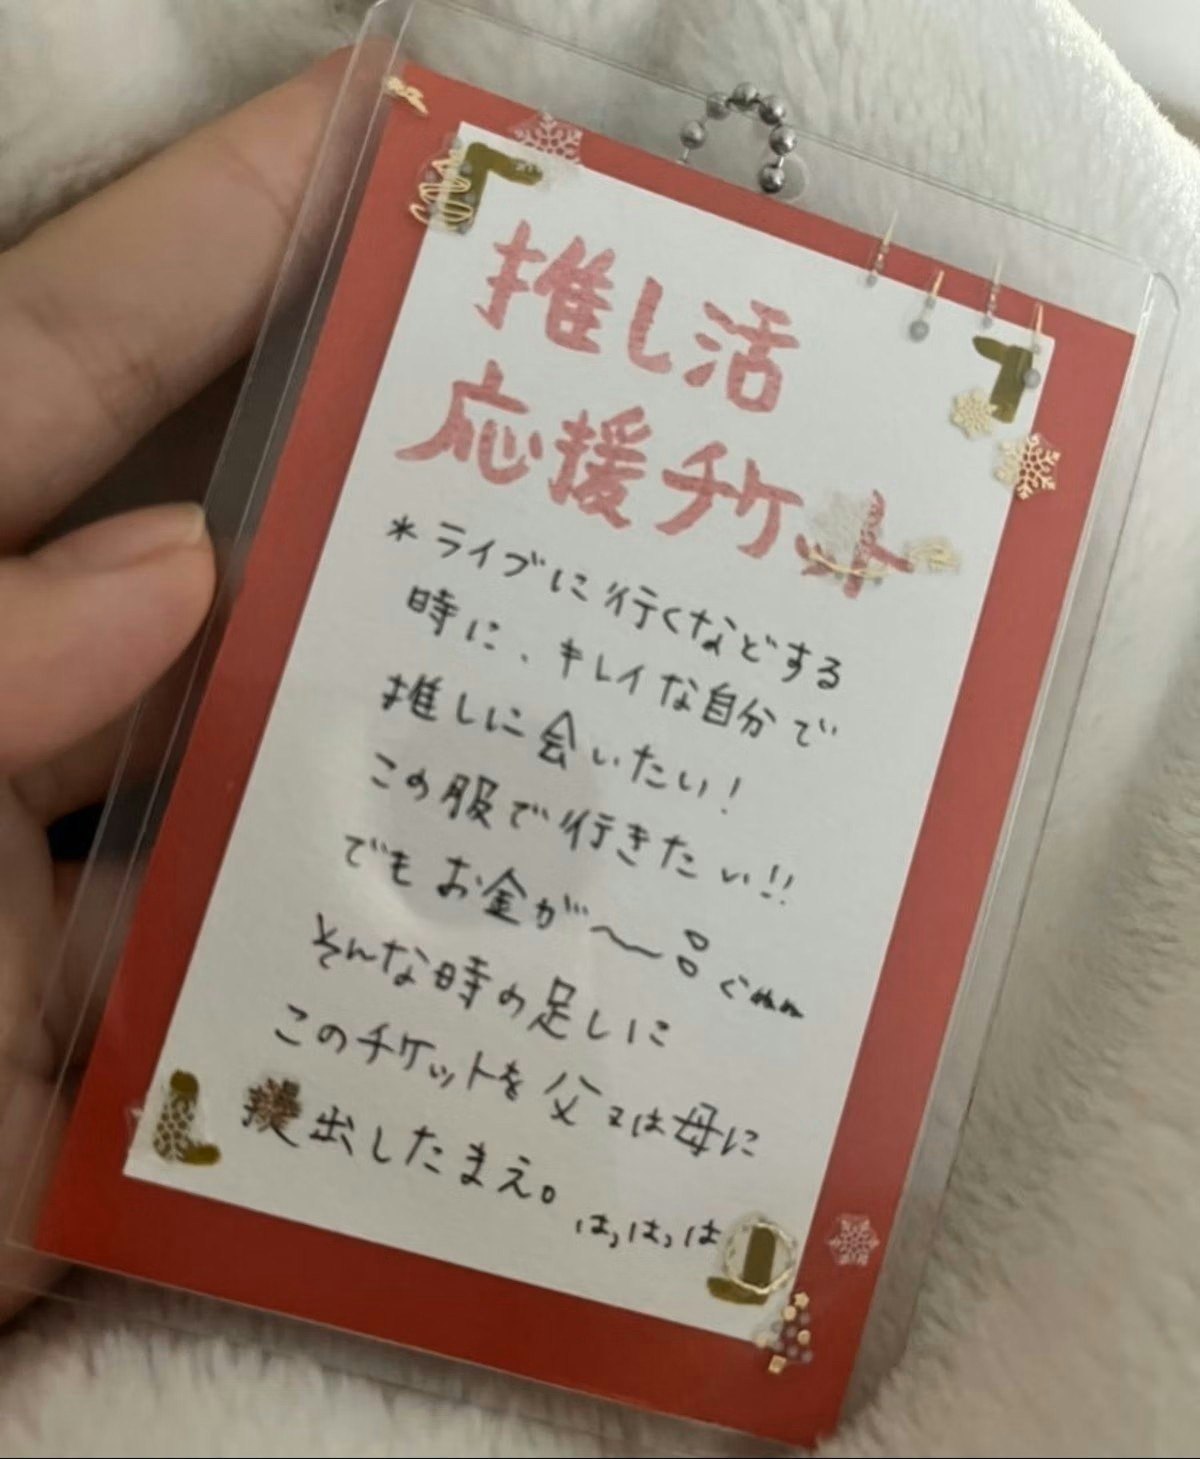 推し活
応援チケット
＊ライブに行くなどする
時に、キレイな自分で
推しに会いたい！
この服で行きたい!!
でもお金が〜 ぐぬぬ
そんな時の足しに
このチケットを父又は母に
提出したまえ。
はっはっは